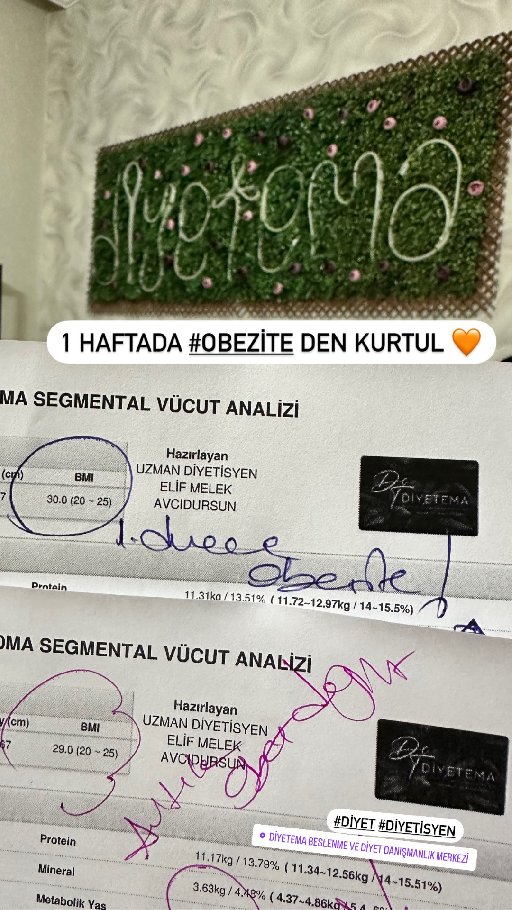 diyetema
1 HAFTADA #OBEZİTE DEN KURTUL 🧡
MA SEGMENTAL VÜCUT ANALİZİ
Hazırlayan
UZMAN DİYETİSYEN
ELİF MELEK
AVCIDURSUN
(cm) BMI
7 30.0 (20 ~ 25)
DİYETEMA
1. derece
obezite!
Protein 11.31kg / 13.51% ( 11.72~12.97kg / 14~15.5%)
OMA SEGMENTAL VÜCUT ANALİZİ
Hazırlayan
UZMAN DİYETİSYEN
ELİF MELEK
AVCIDURSUN
y (cm) BMI
67 29.0 (20 ~ 25)
DİYETEMA
Artık
#DİYET #DİYETİSYEN
DİYETEMA BESLENME VE DİYET DANIŞMANLIK MERKEZİ
Protein 11.17kg / 13.79% ( 11.34~12.56kg / 14~15.51%)
Mineral 3.63kg / 4.48% ( 4.37~4.86kg
Metabolik Yaş